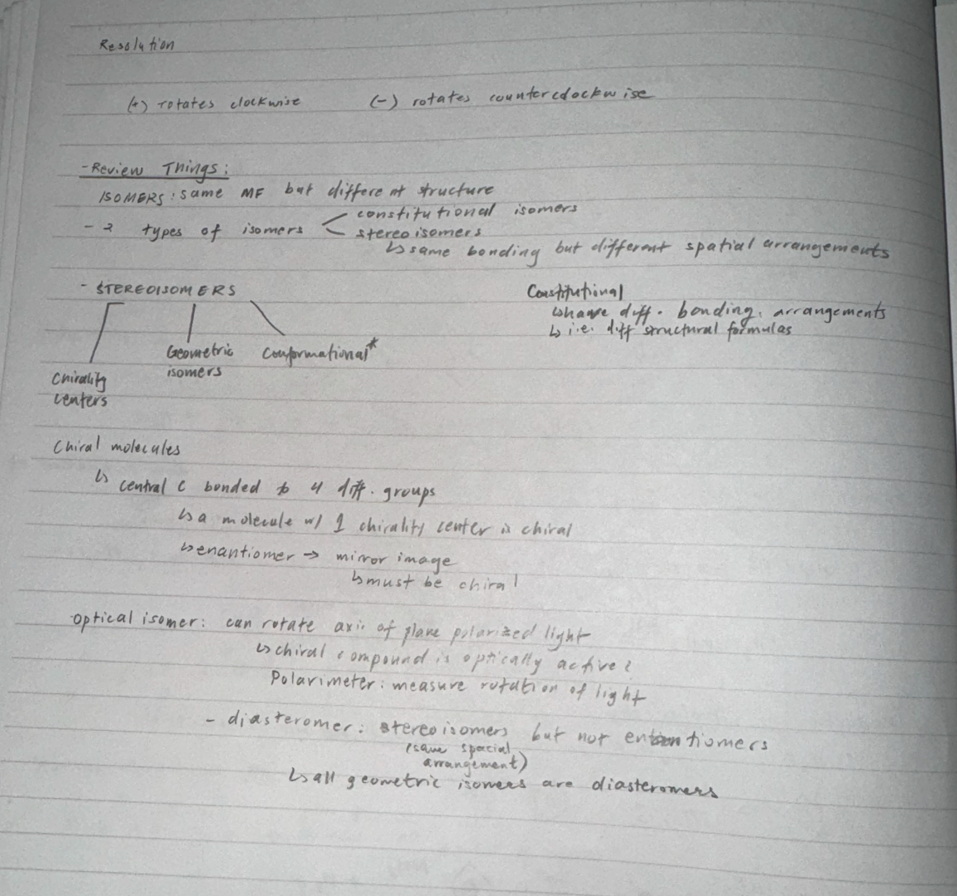 Resolution
(+) rotates clockwise (-) rotates counterclockwise
- Review Things:
ISOMERS: same MF but different structure
- 2 types of isomers < constitutional isomers
stereoisomers
↳ same bonding but different spatial arrangements
- STEREOISOMERS
Chirality centers
Geometric isomers
Conformational*
Constitutional
↳ have diff. bonding arrangements
↳ i.e. diff structural formulas
Chiral molecules
↳ central C bonded to 4 diff. groups
↳ a molecule w/ 1 chirality center is chiral
↳ enantiomer → mirror image
↳ must be chiral
optical isomer: can rotate axis of plane polarized light
↳ chiral compound is optically active
Polarimeter: measure rotation of light
- diasteromer: stereoisomers but not enantiomers
(same spacial
arrangement)
↳ all geometric isomers are diasteromers